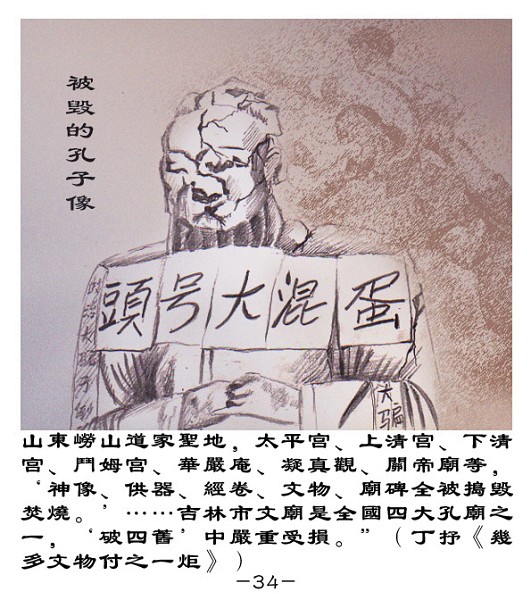 被毀的孔子像
頭号大混蛋
大騙
山東嶗山道家聖地，太平宮、上清宮、下清
宮、鬥姆宮、華嚴庵、凝真觀、關帝廟等，
‘神像、供器、經卷、文物、廟碑全被搗毀
焚燒。’……吉林市文廟是全國四大孔廟之
一，‘破四舊’中嚴重受損。”（丁抒《幾
多文物付之一炬》）
－34－